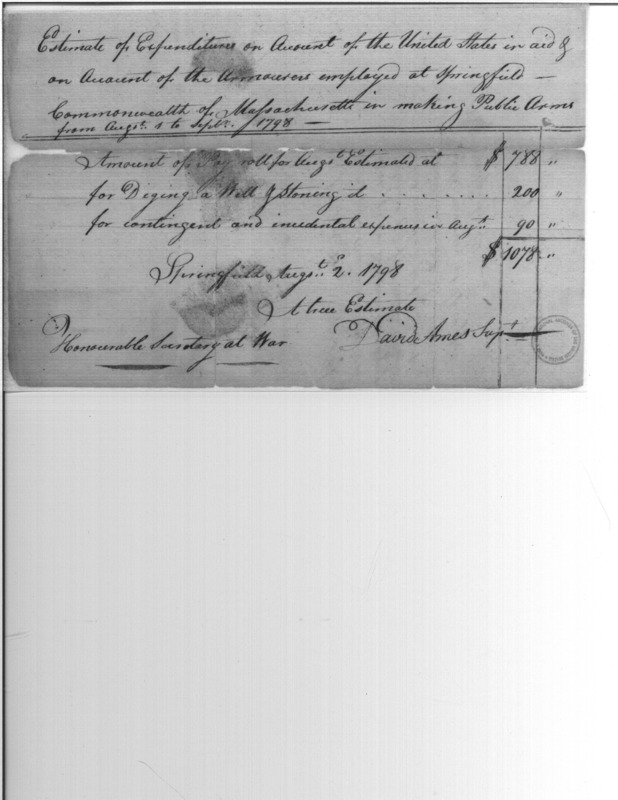 Estimate of Expenditures on Account of the United States in aid &
on Account of the Armourers employed at Springfield —
Commonwealth of Massachusetts in making Public Arms
from Augt. 1 to Sept. 1 1798 —
Amount of Pay roll for Augt. Estimated at $ 788 "
for Diging a Well & Stoning it . . . . . . . 200 "
for contingent and incidental expenses in Augt. 90 "
$ 1078 "
Springfield Augt. 2. 1798
A true Estimate
David Ames Supt.
Honourable Secretary at War